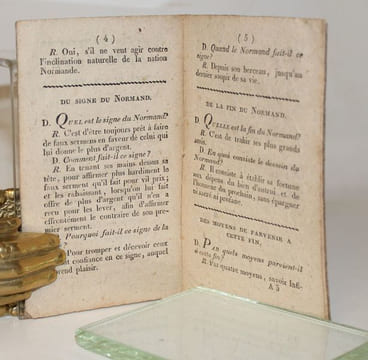 ( 4 )
R. Oui, s'il ne veut agir contre
l'inclination naturelle de la nation
Normande.
DU SIGNE DU NORMAND.
D. QUEL est le signe du Normand?
R. C'est d'être toujours prêt à faire
de faux sermens en faveur de celui qui
lui donne le plus d'argent.
D. Comment fait-il ce signe?
R. En tenant ses mains dessus sa
tête, pour affirmer plus hardiment le
faux serment qu'il fait pour vil prix;
et les rabaissant, lorsqu'on lui fait
offre de plus d'argent qu'il n'en a
reçu pour les lever, afin d'affirmer
effrontément le contraire de son pre-
mier serment.
Pourquoi fait-il ce signe de la
?
Pour tromper et décevoir ceux
ont confiance en ce signe, auquel
prend plaisir.
( 5 )
D. Quand le Normand fait-il ce
signe?
R. Depuis son berceau, jusqu'au
dernier soupir de sa vie.
DE LA FIN DU NORMAND.
D. QUELLE est la fin du Normand?
R. C'est de trahir ses plus grands
amis.
D. En quoi consiste le dessein du
Normand?
R. Il consiste à établir sa fortune
aux dépens du bien d'autrui et de
l'honneur du prochain, sans épargner
sa
DES MOYENS DE PARVENIR A
CETTE FIN.
D. PAR quels moyens parvient-il
à cette fin?
R. Par quatre moyens, savoir
A 3